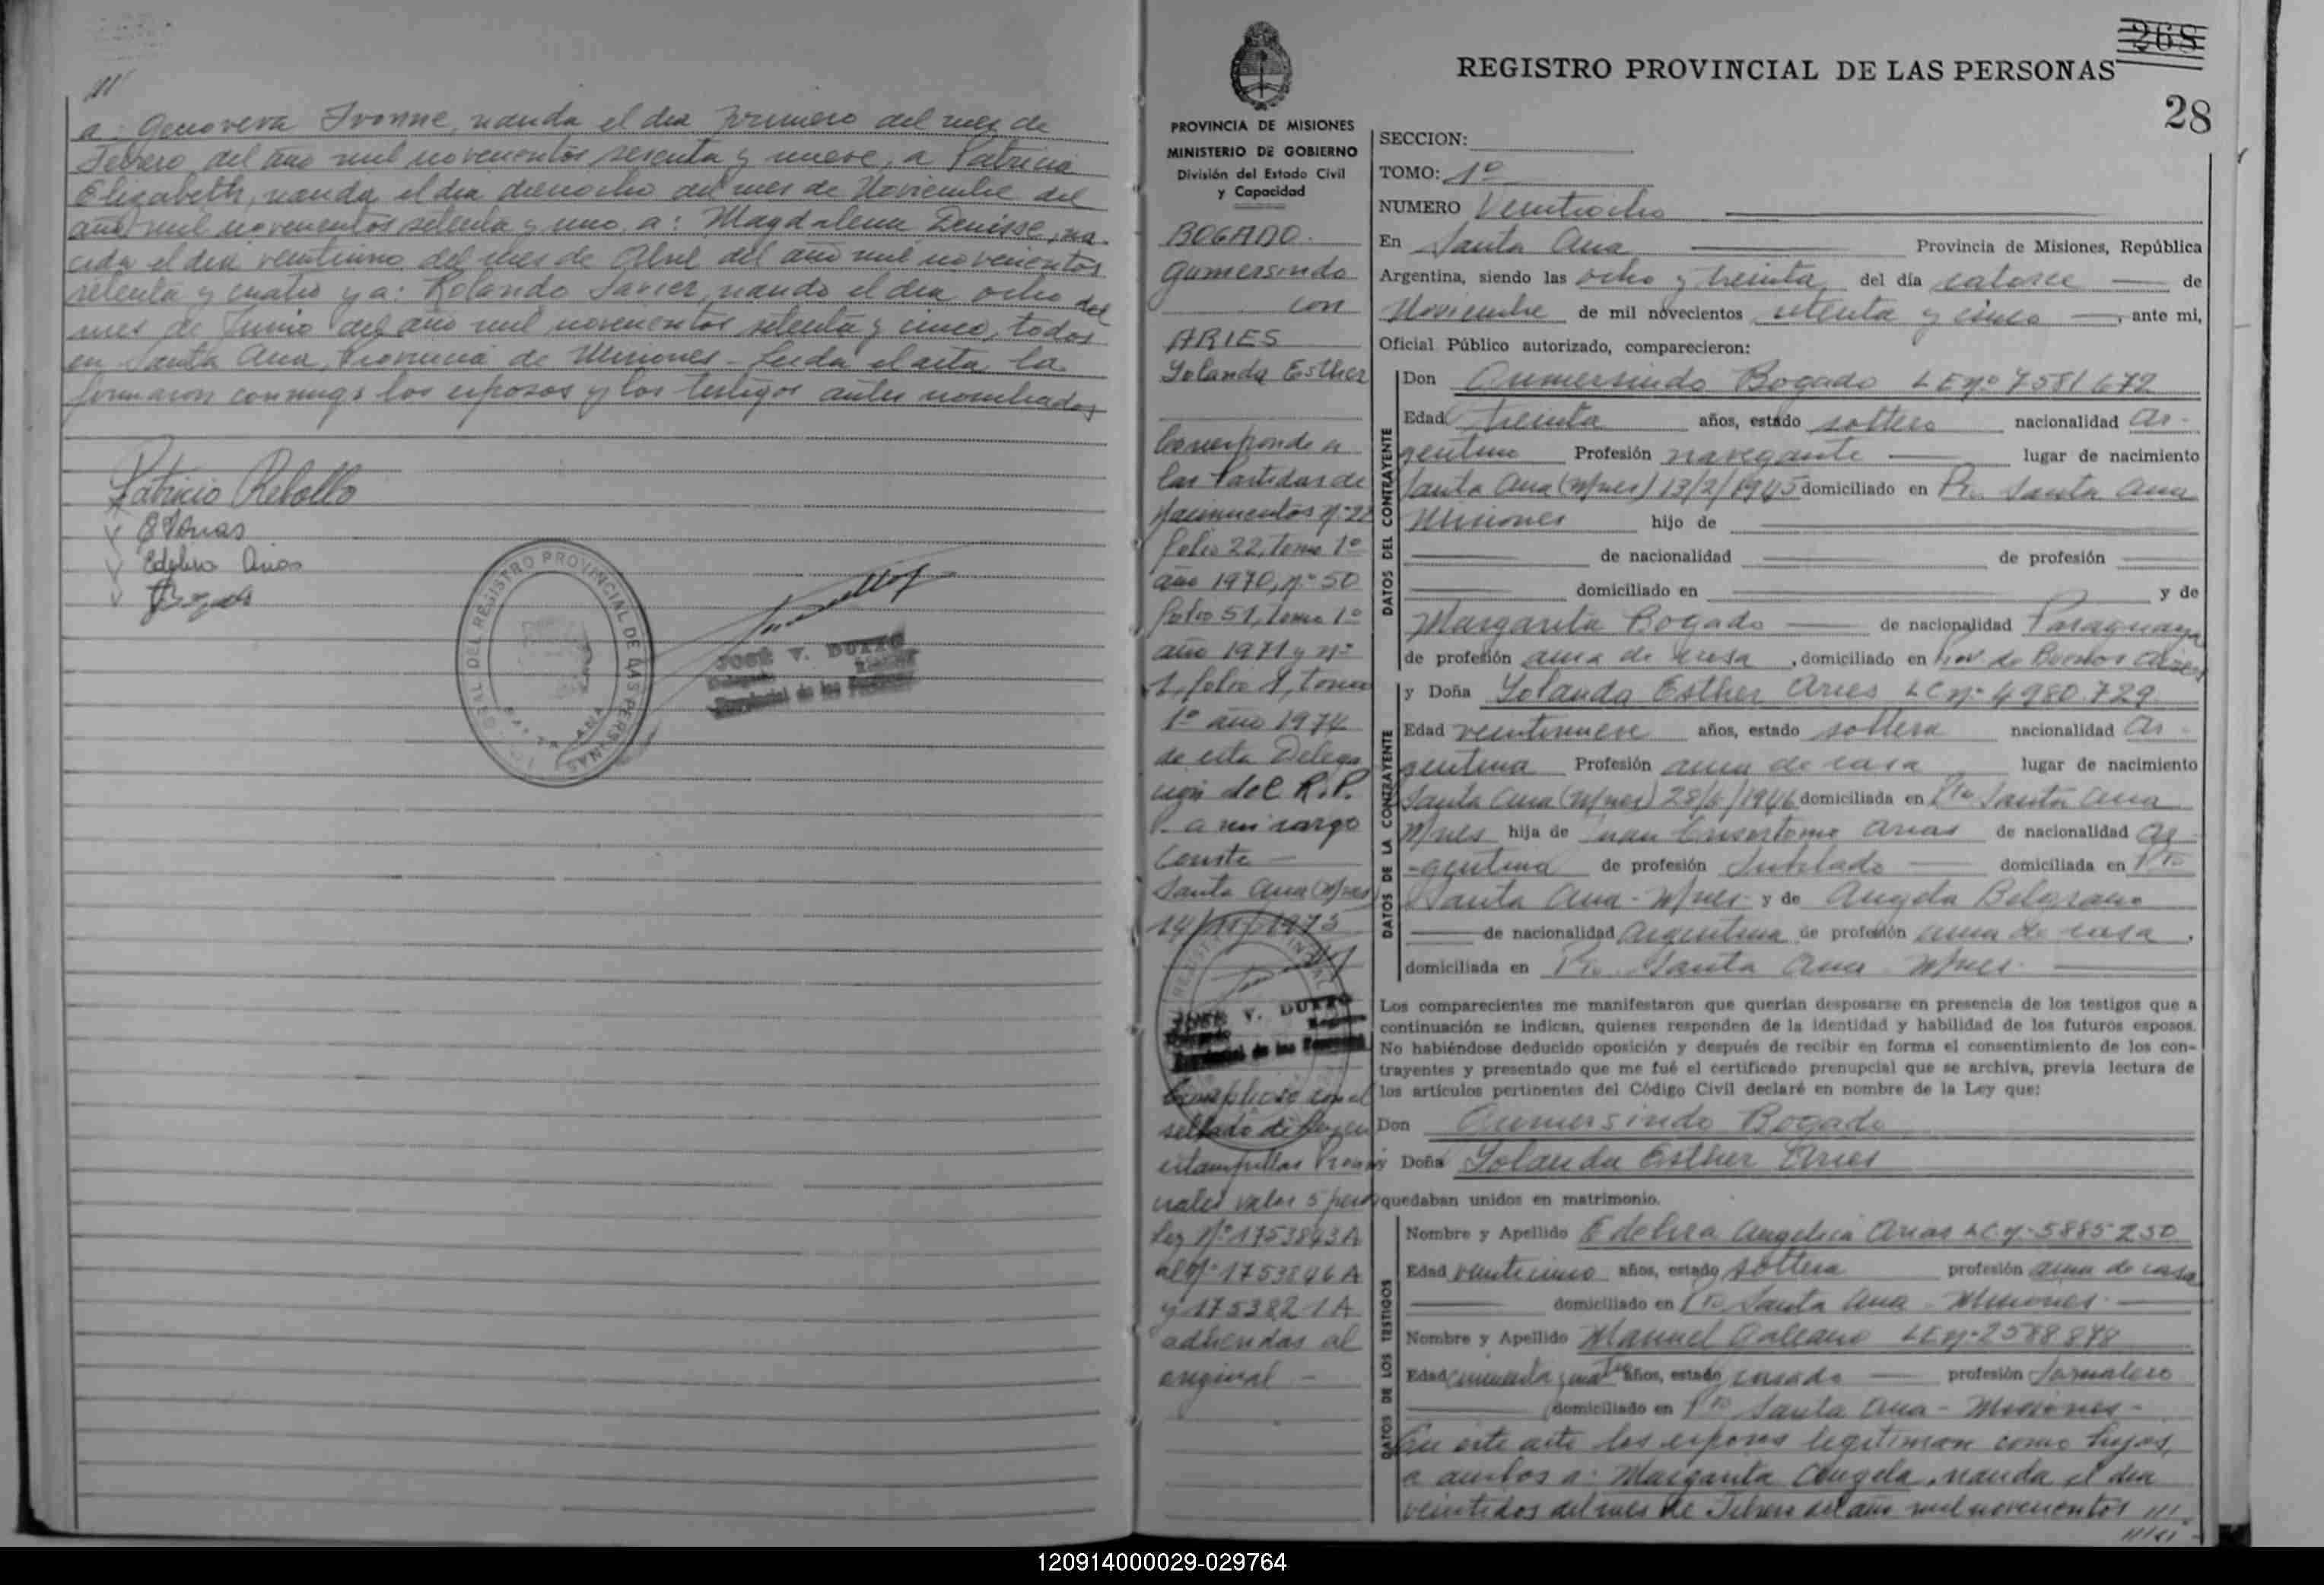 a: Genoveva Ivonne, nacida el dia primero del mes de
Febrero del año mil novecientos sesenta y nueve, a Patricia
Elizabeth, nacida el dia dieciocho del mes de Noviembre del
año mil novecientos setenta y uno, a: Magdalena Denisse, na
cida el dia veintiuno del mes de Abril del año mil novecientos
setenta y cuatro y a: Rolando Javier, nacido el dia ocho del
mes de Junio del año mil novecientos setenta y cinco, todos
en Santa Ana, Provincia de Misiones - Leida el acta la
firmaron conmigo los esposos y los testigos antes nombrados
Patricio Rebollo
Edelira Arias
DEL REGISTRO PROVINCIAL DE LAS PERSONAS
SANTA ANA
JOSÉ V. DUTTO
Provincial de las Personas
268
REGISTRO PROVINCIAL DE LAS PERSONAS
28
PROVINCIA DE MISIONES
MINISTERIO DE GOBIERNO
División del Estado Civil
y Capacidad
BOGADO
Gumersindo
con
ARIES
Yolanda Esther
Corresponde a
las Partidas de
Nacimientos Nº 22
folio 22, tomo 1º
año 1970, nº 50
folio 51, tomo 1º
año 1971 y nº
1, folio 1, tomo
1º año 1974
de esta Delega
ción del R.P.
a mi cargo
Conste -
Santa Ana (Mnes)
14/11/1975
JOSÉ V. DUTTO
Provincial de las Personas
sellado de
estampillas Provin
ciales valor 5 pesos
Ley Nº 1753843A
al Nº 1753846A
y 1753821A
adheridas al
original -
SECCION:
TOMO: 1º
NUMERO Veintiocho
En Santa Ana Provincia de Misiones, República
Argentina, siendo las ocho y treinta del día catorce de
Noviembre de mil novecientos setenta y cinco, ante mi,
Oficial Público autorizado, comparecieron:
DATOS DEL CONTRAYENTE
Don Gumersindo Bogado LE nº 7581672
Edad treinta años, estado soltero nacionalidad Ar-
gentino Profesión navegante lugar de nacimiento
Santa Ana (Mnes) 13/2/1945 domiciliado en Pto. Santa Ana
Misiones hijo de
de nacionalidad de profesión
domiciliado en y de
Margarita Bogado de nacionalidad Paraguaya
de profesión ama de casa, domiciliado en Prov. de Buenos Aires
DATOS DE LA CONTRAYENTE
y Doña Yolanda Esther Aries LC nº 4980.729
Edad veintinueve años, estado soltera nacionalidad Ar-
gentina Profesión ama de casa lugar de nacimiento
Santa Ana (Mnes) 28/6/1946 domiciliada en Pto Santa Ana
Mnes hija de Juan Crisostomo Arias de nacionalidad Ar
-gentina de profesión Jubilado domiciliada en Pto
Santa Ana - Mnes y de Angela Belgrano
de nacionalidad Argentina de profesión ama de casa,
domiciliada en Pto. Santa Ana Mnes.
Los comparecientes me manifestaron que querían desposarse en presencia de los testigos que a
continuación se indican, quienes responden de la identidad y habilidad de los futuros esposos.
No habiéndose deducido oposición y después de recibir en forma el consentimiento de los con-
trayentes y presentado que me fué el certificado prenupcial que se archiva, previa lectura de
los artículos pertinentes del Código Civil declaré en nombre de la Ley que:
Don Gumersindo Bogado
Doña Yolanda Esther Aries
quedaban unidos en matrimonio.
DATOS DE LOS TESTIGOS
Nombre y Apellido Edelira Angelica Arias LC nº 5885250
Edad veinticinco años, estado soltera profesión ama de casa
domiciliado en Pto Santa Ana - Misiones.
Nombre y Apellido Manuel Galeano LE nº 2588878
Edad cincuenta y cuatro años, estado casado profesión Jornalero
domiciliado en Pto Santa Ana - Misiones -
En este acto los esposos legitiman como hijos,
a ambos a: Margarita Angela, nacida el dia
veintidos del mes de Febrero del año mil novecientos ///
120914000029-029764